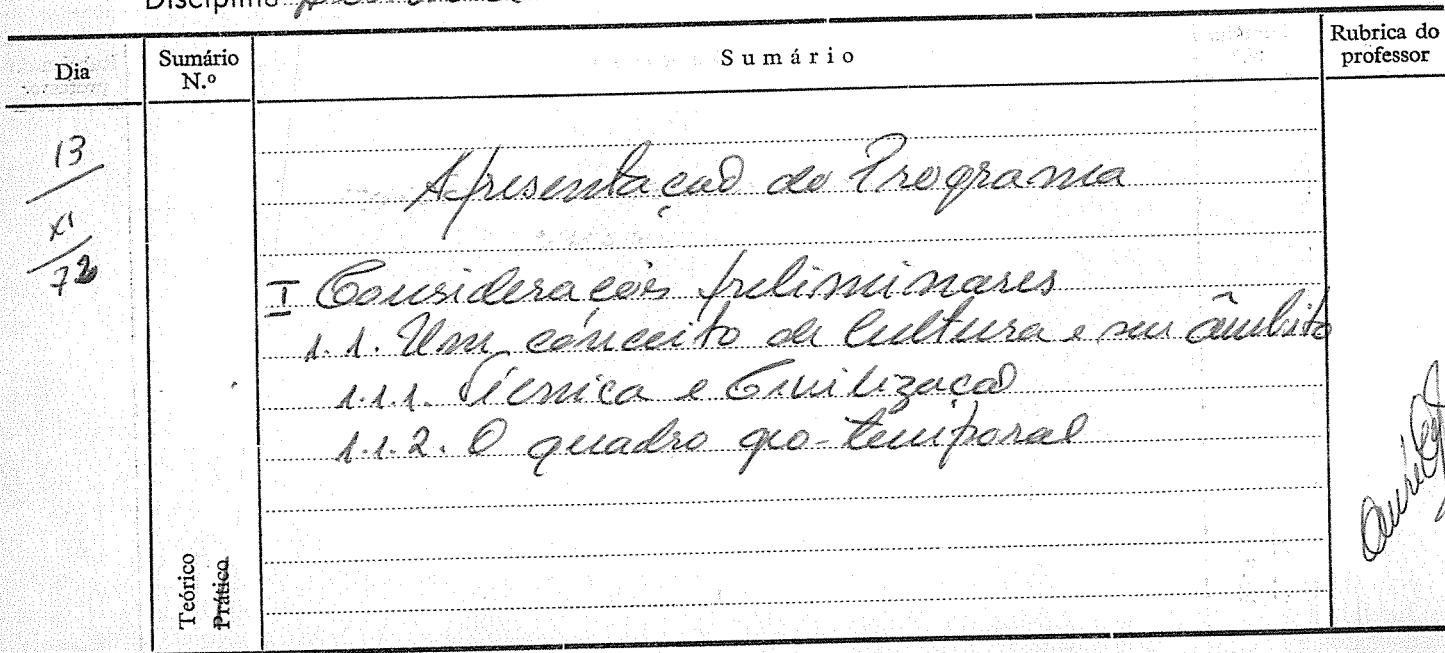 Disciplina
Dia
Sumário N.º
Sumário
Rubrica do professor
13
XI
72
Apresentação do Programa
I Considerações preliminares
1.1. Um conceito de Cultura e seu âmbito
1.1.1. Técnica e Civilização
1.1.2. O quadro geo-temporal
Teórico
Prático